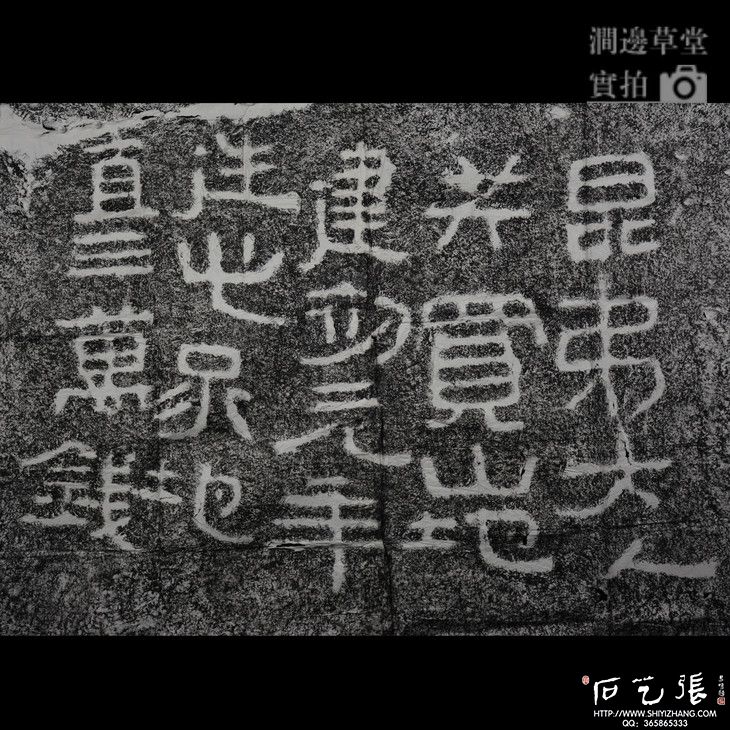 澗邊草堂
實拍
昆弟六人
共買山地
建初元年
造此冢地
直三萬錢
石艺張
HTTP://WWW.SHIYIZHANG.COM
QQ: 365865333